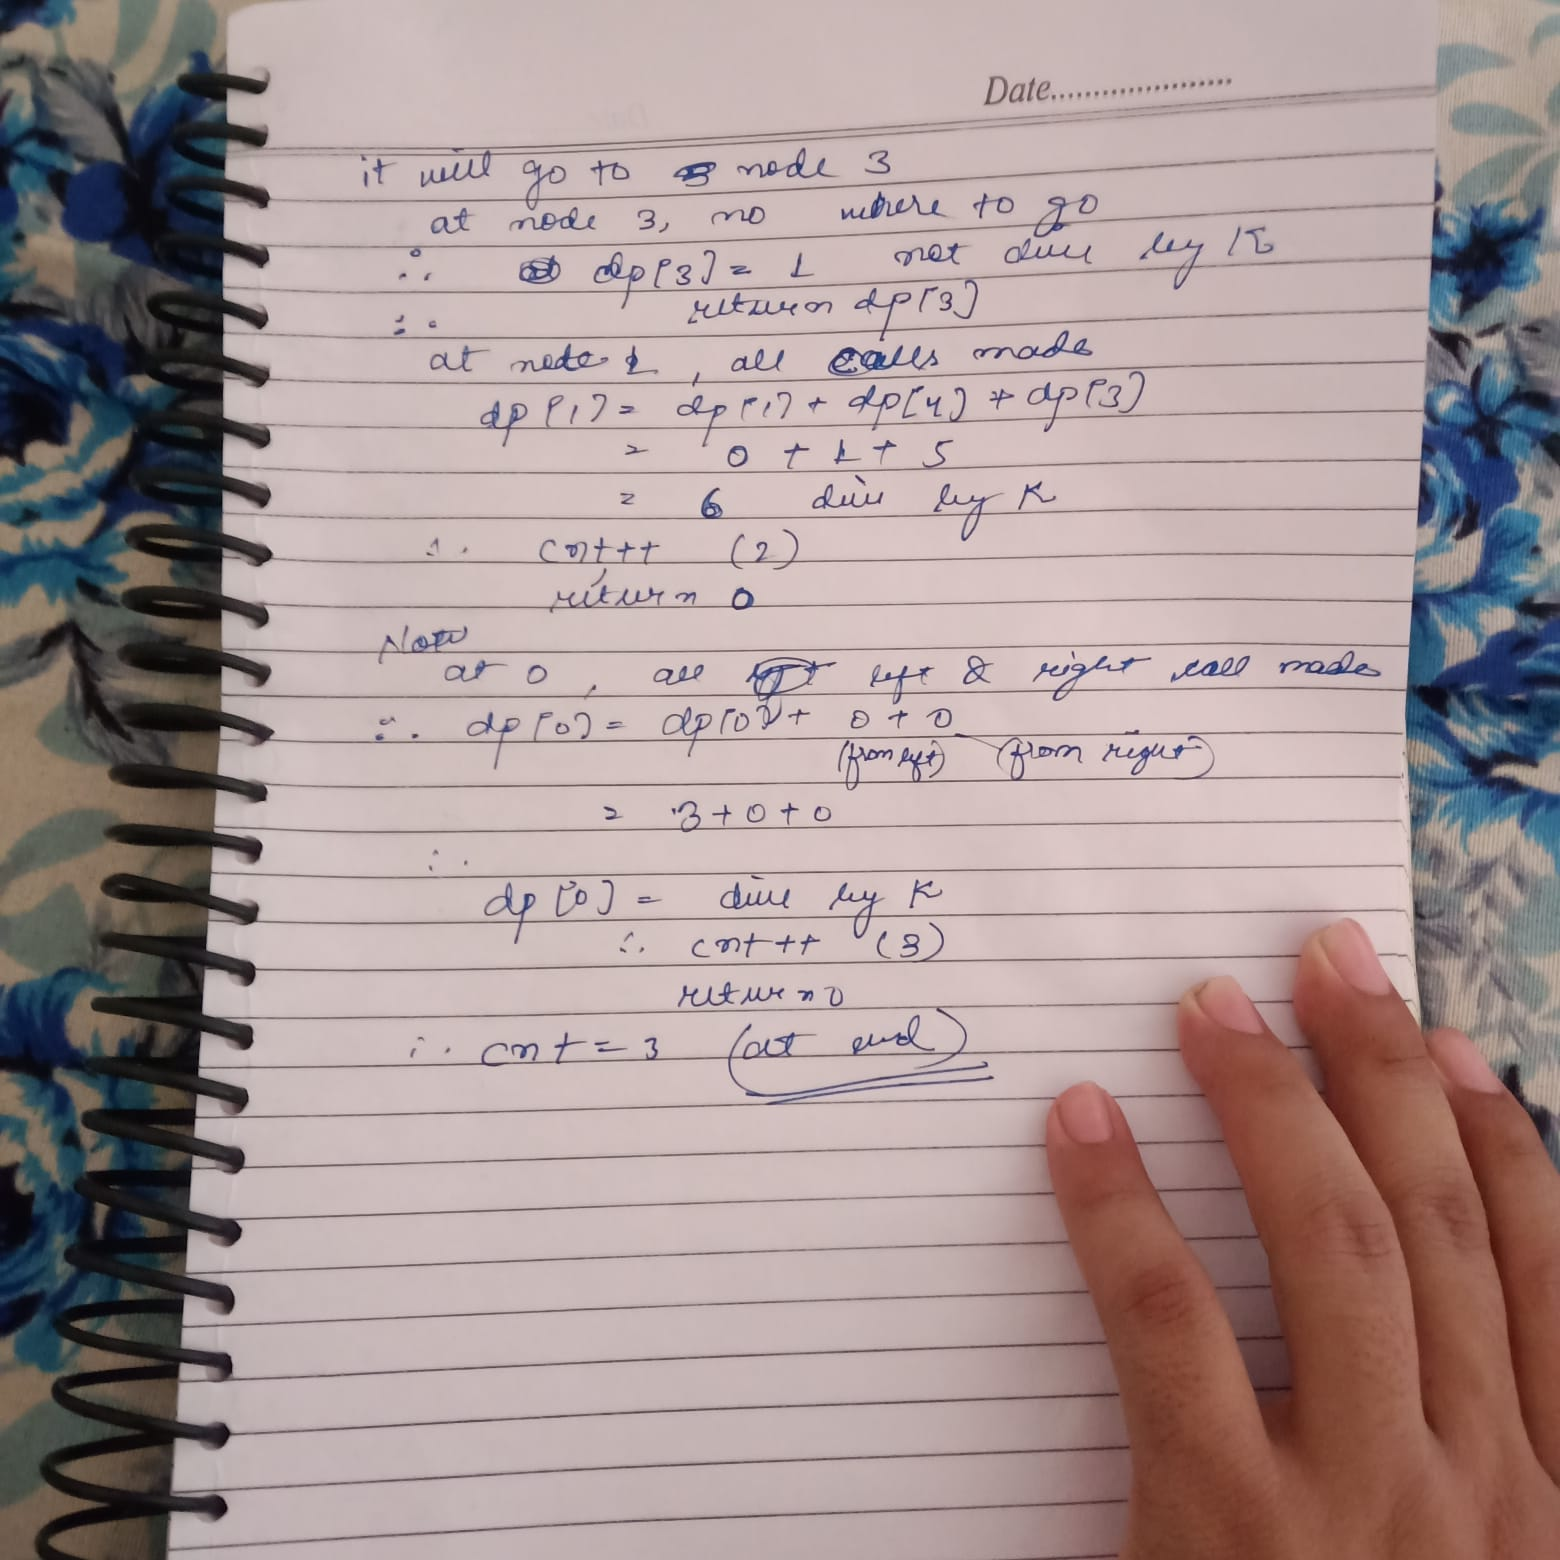 Date
it will go to node 3
at node 3, no where to go
∴ dp[3] = 1 not div by K
∴ return dp[3]
at node 1, all calls made
dp[1] = dp[1] + dp[4] + dp[3]
= 0 + 1 + 5
= 6 div by K
∴ cnt++ (2)
return 0
Now
at 0, all left & right call made
∴ dp[0] = dp[0] + 0 + 0
(from left) (from right)
= 3+0+0
∴
dp[0] = div by K
∴ cnt++ (3)
return 0
∴ cnt = 3 (at end)